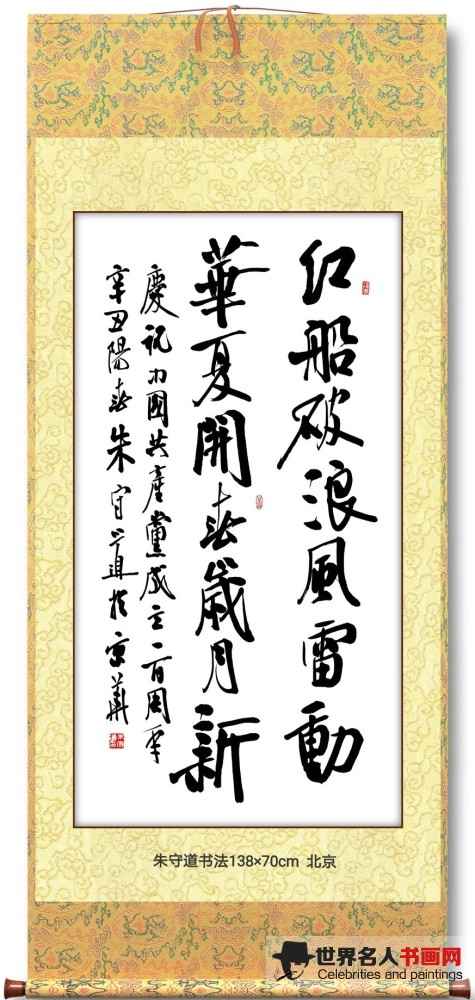 红船破浪風雷動
華夏開春歲月新
慶祝中國共產黨成立一百周年
辛丑陽春朱守道於京華
朱守道书法138×70cm 北京
世界名人书画网
Celebrities and paintings